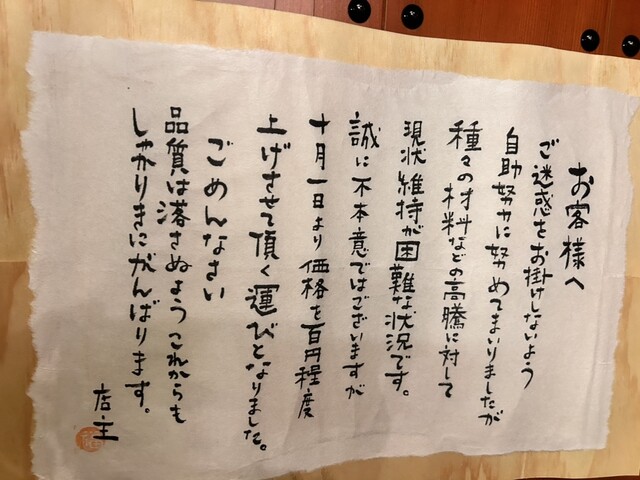 お客様へ
ご迷惑をお掛けしないよう
自助努力に努めてまいりましたが
種々の材料などの高騰に対して
現状維持が困難な状況です。
誠に不本意ではございますが
十月一日より価格を百円程度
上げさせて頂く運びとなりました。
ごめんなさい
品質は落さぬようこれからも
しゃかりきにがんばります。
店主